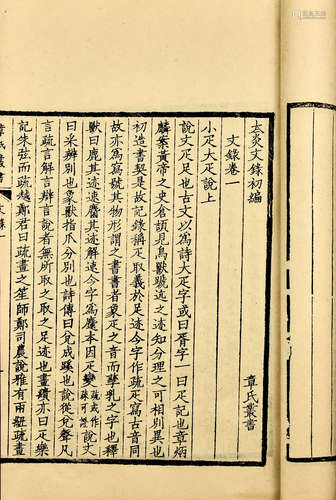 太炎文錄初編
文錄卷一
章氏叢書
小疋大疋說上
說文疋足也古文以爲詩大疋字或曰胥字一曰疋記也章炳
麟案黃帝之史倉頡見鳥獸蹏迒之迹知分理之可相別異也
初造書契是故記錄稱疋取義於足迹今字作疏疋寫古音同
故亦爲寫號其物形謂之書書者象疋之音而孳乳之字也釋
獸曰鹿其迹速麕其迹解速今字爲麤本因疋變 疏或作疎可證 說文
曰釆辨別也象獸指爪分別也詩傳曰兌成蹊也說從兌聲凡
言疏言解言辨言說者無所取之取之足迹也畫繢亦曰疋樂
記朱弦而疏越鄭君曰疏畫之笙師鄭司農說雅有兩紐疏畫
章氏叢書
文錄一